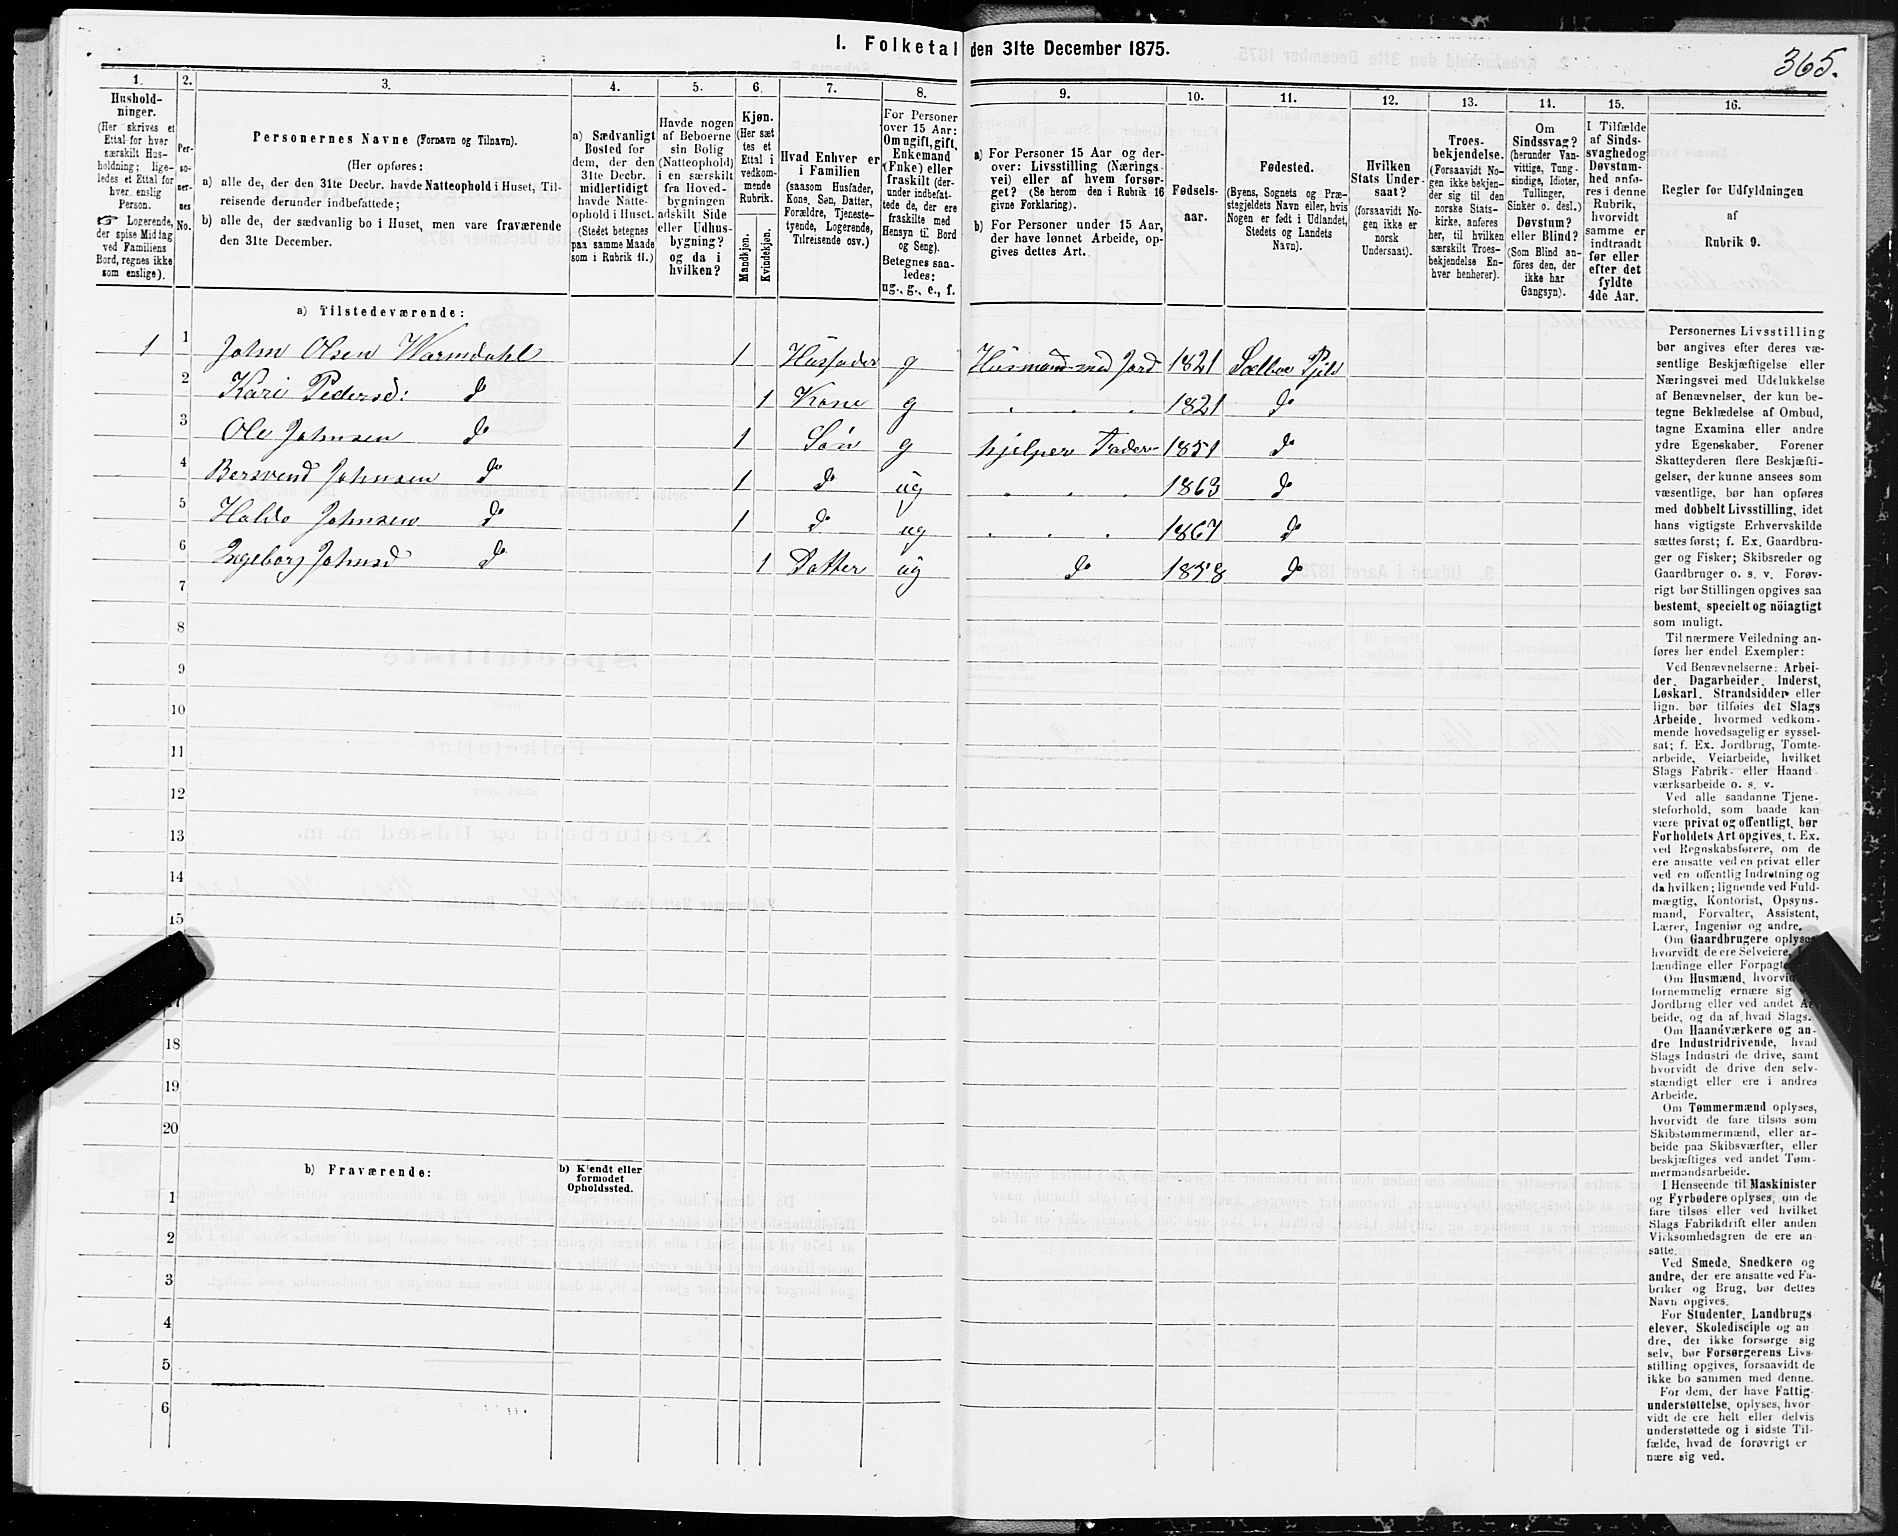 365.
I. Folketal den 31te December 1875.
1. 2. 3. 4. 5. 6. 7. 8. 9. 10. 11. 12. 13. 14. 15. 16.
Hushold-
ninger.
(Her skrives et
Ettal for hver
særskilt Hus-
holdning; lige-
ledes et Ettal for
hver enslig
Person.
☞ Logerende,
der spise Middag
ved Familiens
Bord, regnes ikke
som enslige).
Per-
so-
ner-
nes
No.
Personernes Navne (Fornavn og Tilnavn).
(Her opføres:
a) alle de, der den 31te Decbr. havde Natteophold i Huset, Til-
reisende derunder indbefattede;
b) alle de, der sædvanlig bo i Huset, men vare fraværende
den 31te December.
a) Sædvanligt
Bosted for
dem, der den
31te Decbr.
midlertidigt
havde Natte-
ophold i Huset.
(Stedet betegnes
paa samme Maade
som i Rubrik 11.)
Havde nogen
af Beboerne
sin Bolig
(Natteophold)
i en særskilt
fra Hoved-
bygningen
adskilt Side
eller Udhus-
bygning?
og da i
hvilken?
Kjøn.
(Her sæt
tes et
Ettal i
vedkom-
mende
Rubrik.
Mandkjøn.
Kvindekjøn.
Hvad Enhver er
i Familien
(saasom Husfader,
Kone, Søn, Datter,
Forældre, Tjeneste-
tyende, Logerende,
Tilreisende osv.)
For Personer
over 15 Aar:
Om ugift, gift,
Enkemand
(Enke) eller
fraskilt (der-
under indbefat-
tede de, der ere
fraskilte med
Hensyn til Bord
og Seng).
Betegnes saa-
ledes:
ug., g., e., f.
a) For Personer 15 Aar og der-
over: Livsstilling (Nærings-
vei) eller af hvem forsør-
get? (Se herom den i Rubrik 16
givne Forklaring).
b) For Personer under 15 Aar,
der have lønnet Arbeide, op-
gives dettes Art.
Fødsels-
aar.
Fødested.
(Byens, Sognets og Præ-
stegjeldets Navn eller, hvis
Nogen er født i Udlandet,
Stedets og Landets
Navn).
Hvilken
Stats Under-
saat?
(forsaavidt No-
gen ikke er
norsk
Undersaat).
Troes-
bekjendelse.
(Forsaavidt No-
gen ikke bekjen-
der sig til den
norske Stats-
kirke, anføres
her, til hvilken
særskilt Troes-
bekjendelse En-
hver henhører).
Om
Sindssvag?
(herunder Van-
vittige, Tung-
sindige, Idioter,
Tullinger,
Sinker o. desl.)
Døvstum?
eller Blind?
(Som Blind an-
føres den, der
ikke har
Gangsyn).
I Tilfælde
af Sinds-
svaghed og
Døvstum-
hed anfø-
res i denne
Rubrik,
hvorvidt
samme er
indtraadt
før eller
efter det
fyldte
4de Aar.
Regler for Udfyldningen
af
Rubrik 9.
a) Tilstedeværende:
1 1 John Olsen Warmdahl 1 Husfader g Husmand med Jord 1821 Sælboe Pjæld
2 Kari Pedersd: do 1 Kone g " " " 1821 do
3 Ole Johnsen do 1 Søn g hjelper Fader 1851 do
4 Bersvend Johnsen do 1 do ug " " " 1863 do
5 Haldo Johnsen do 1 do ug " " " 1867 do
6 Ingeborg Johnsd do 1 Datter ug do 1858 do
7
8
9
10
11
12
13
14
15
17
18
19
20
b) Fraværende:
b) Kjendt eller
formodet
Opholdssted.
1
2
3
4
5
6
Personernes Livsstilling
bør angives efter deres væ-
sentlige Beskjæftigelse eller
Næringsvei med Udelukkelse
af Benævnelser, der kun be-
tegne Beklædelse af Ombud,
tagne Examina eller andre
ydre Egenskaber. Forener
Skatteyderen flere Beskjæfti-
gelser, der kunne ansees som
væsentlige, bør han opføres
med dobbelt Livsstilling, idet
hans vigtigste Erhvervskilde
sættes først; f. Ex. Gaardbru-
ger og Fisker; Skibsreder og
Gaardbruger o. s. v. Forøv-
rigt bør Stillingen opgives saa
bestemt, specielt og nöiagtigt
som muligt.
Til nærmere Veiledning an-
føres her endel Exempler:
Ved Benævnelserne: Arbei-
der, Dagarbeider, Inderst,
Løskarl, Strandsidder eller
lign. bør tilføies det Slags
Arbeide, hvormed vedkom-
mende hovedsagelig er syssel-
sat; f. Ex. Jordbrug, Tomte-
arbeide, Veiarbeide, hvilket
Slags Fabrik- eller Haand
værksarbeide o. s. v.
Ved alle saadanne Tjene-
steforhold, som baade kan
være privat og offentligt, bør
Forholdets Art opgives, t. Ex.
ved Regnskabsførere, om de
ere ansatte ved en privat eller
ved en offentlig Indretning og
da hvilken; lignende ved Fuld-
mægtig, Kontorist, Opsyns-
mand, Forvalter, Assistent,
Lærer, Ingeniør og andre.
Om Gaardbrugere oplyses
hvorvidt de ere Selveiere,
lændinge eller Forpagte
Om Husmænd, hvorvi
fornemmelig ernære sig
Jordbrug eller ved andet Ar
beide, og da af hvad Slags.
Om Haandværkere og an-
dre Industridrivende, hvad
Slags Industri de drive, samt
hvorvidt de drive den selv-
stændigt eller ere i andres
Arbeide.
Om Tømmermænd oplyses,
hvorvidt de fare tilsøs som
Skibstømmermænd, eller ar-
beide paa Skibsværfter, eller
beskjæftiges ved andet Tøm-
mermandsarbeide.
I Henseende til Maskinister
og Fyrbødere oplyses, om de
fare tilsøs eller ved hvilket
Slags Fabrikdrift eller anden
Virksomhedsgren de ere an-
satte.
Ved Smede, Snedkere og
andre, der ere ansatte ved Fa-
briker og Brug, bør dettes
Navn opgives.
For Studenter, Landbrugs
elever, Skoledisciple og an
dre, der ikke forsørge sig
selv, bør Forsørgerens Livs-
stilling opgives, forsaavidt de
ikke bo sammen med denne.
For dem, der have Fattig-
understøttelse, oplyses, hvor-
vidt de ere helt eller delvis
understøttede og i sidste Til-
fælde, hvad de forøvrigt er
nære sig ved.